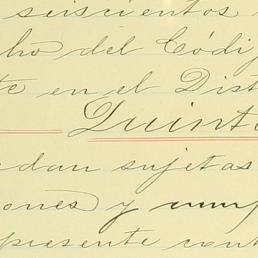 seiscientos
ho del Códi
te en el Dist
Quint
edan sujetas
ones y cump
presente cont